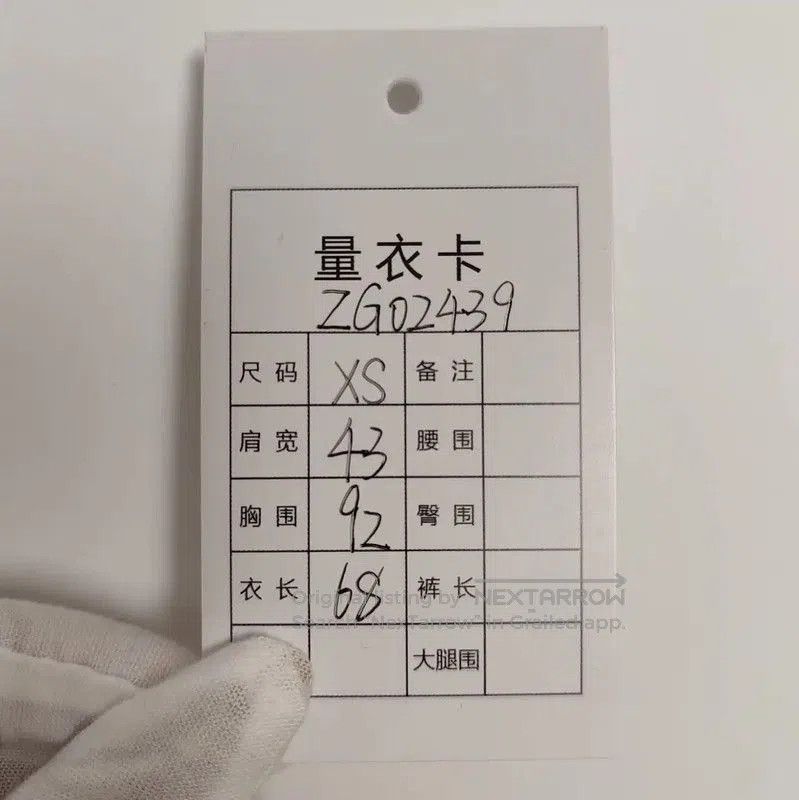 量衣卡
ZG02439
尺码 XS 备注
肩宽 43 腰围
胸围 92 臀围
衣长 68 裤长
大腿围
Original listing by NEXTARROW
Search "NexTarrow" in Grailed app.